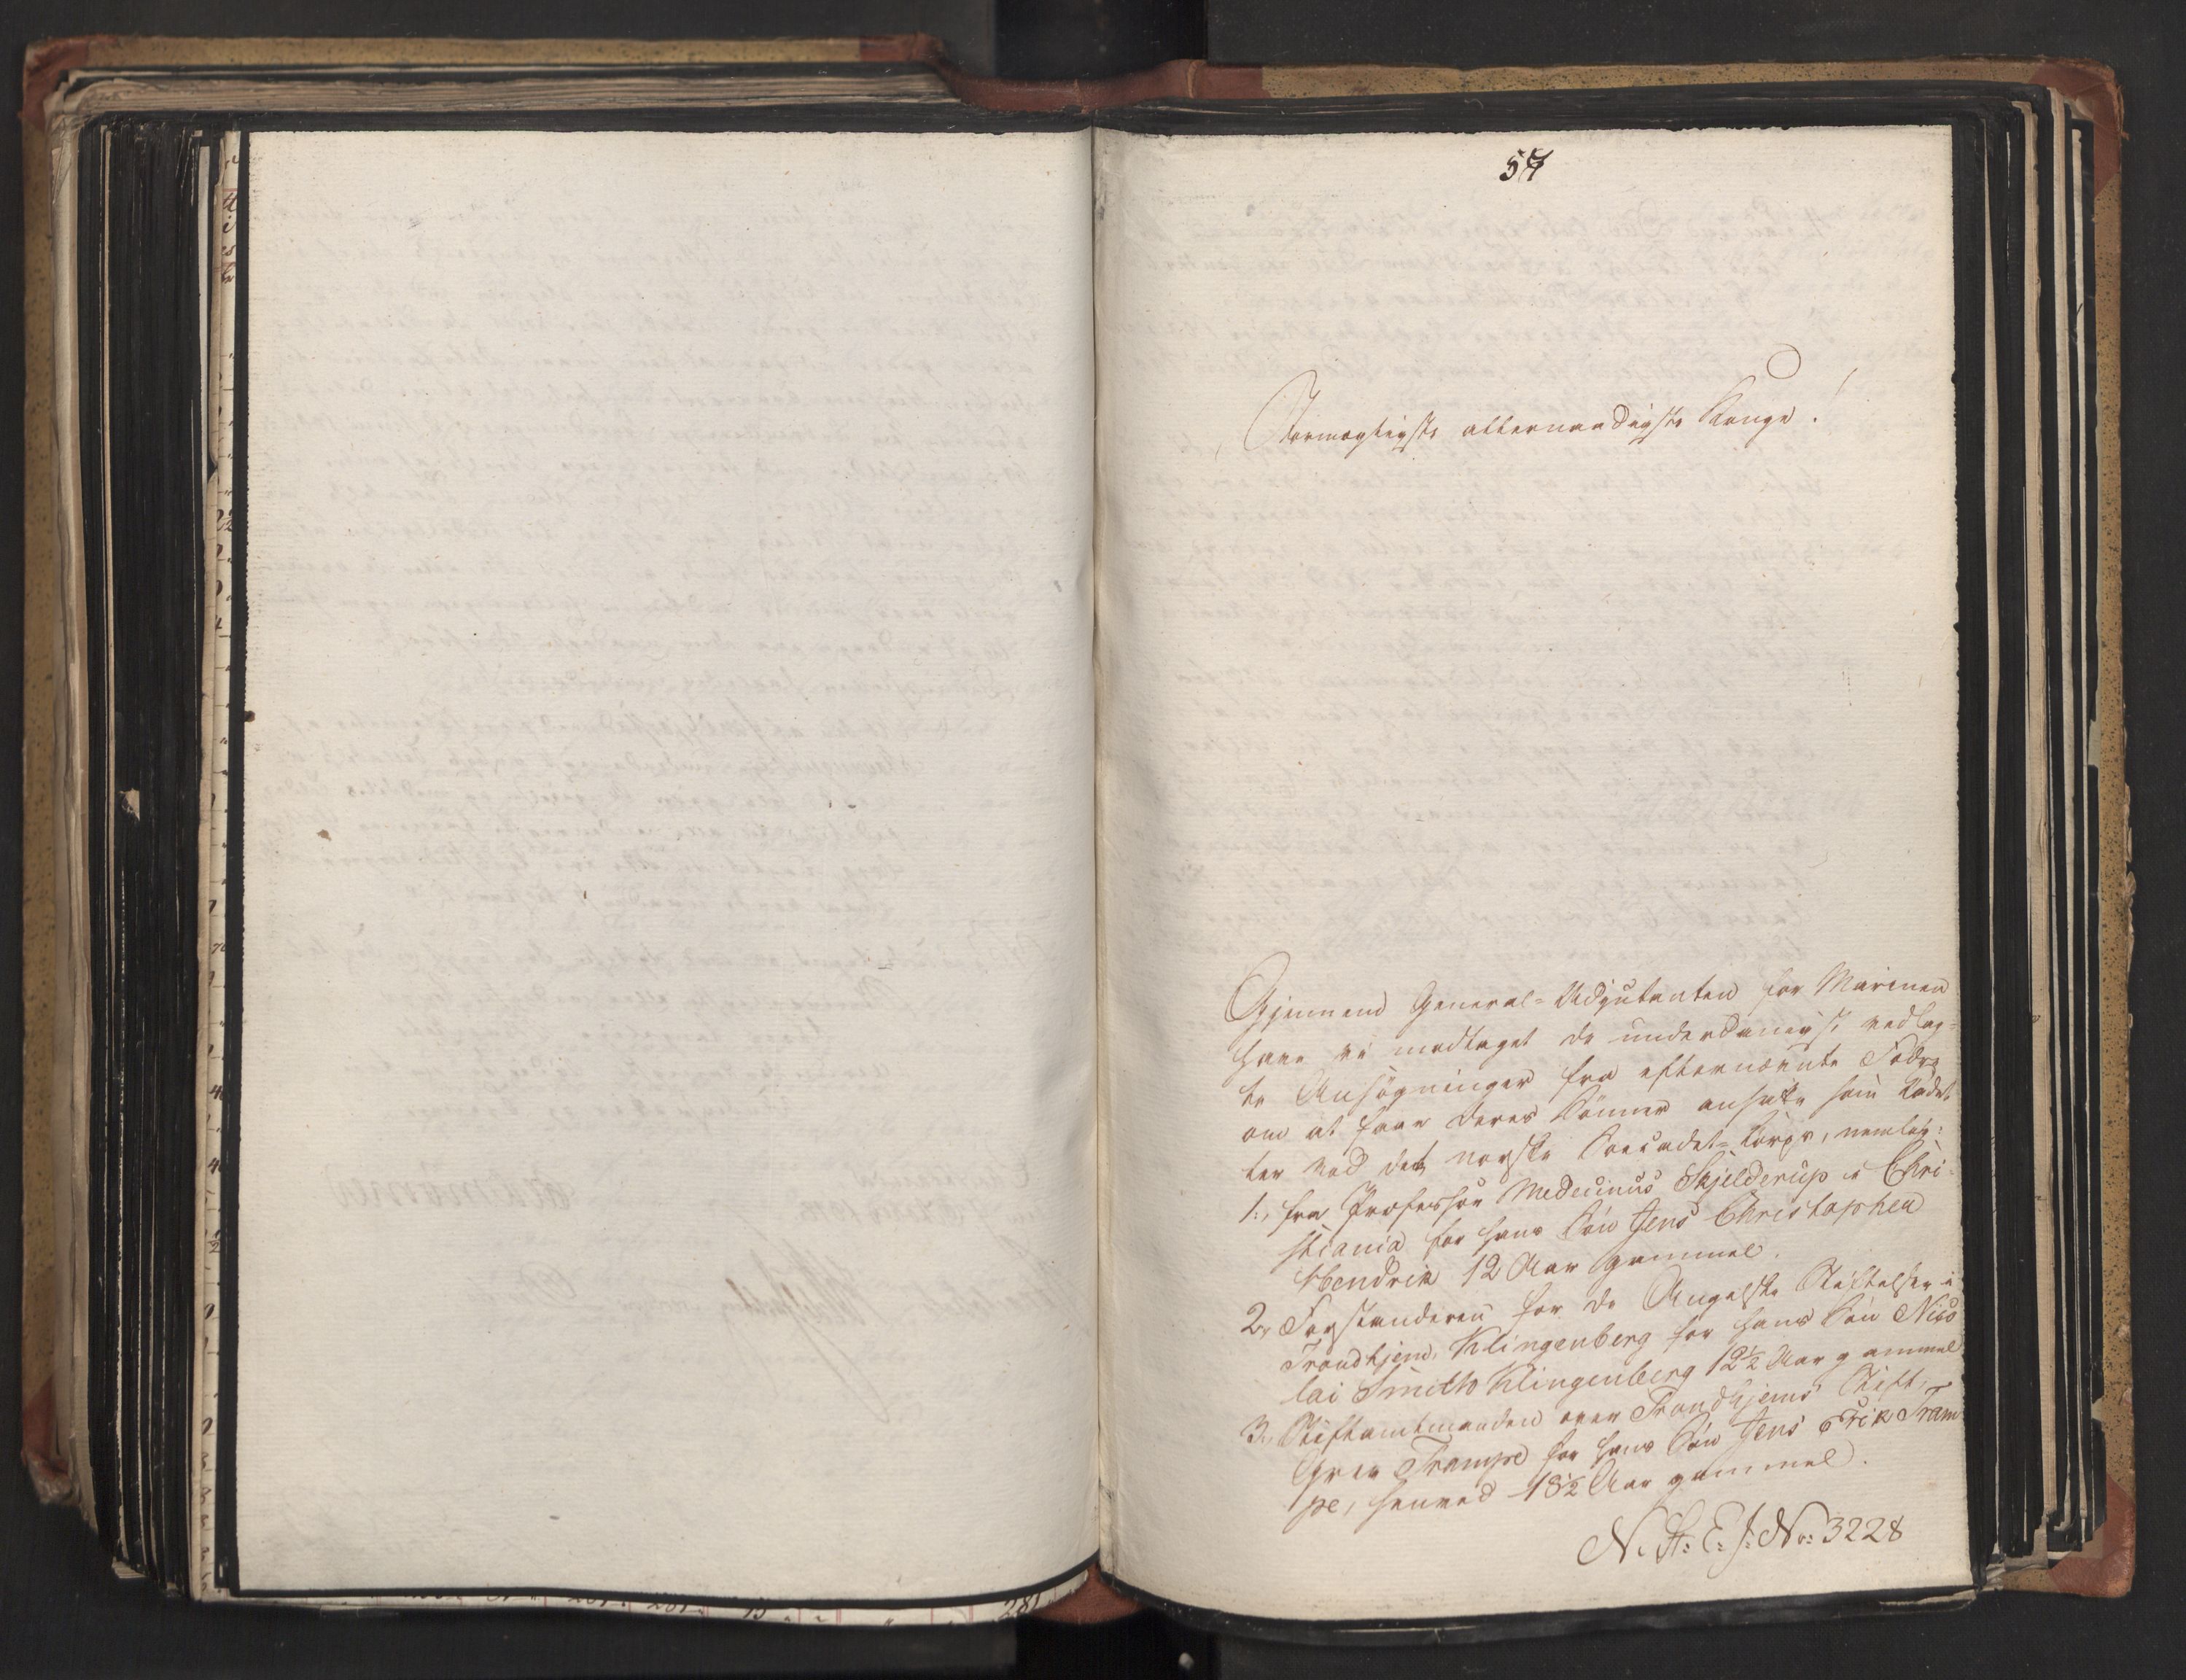 57
Stormægtigste allernaadigste Konge!
Gjennem General-Adjutanten for Marinen
have vi modtaget de underdanigst vedlag-
te Ansøgninger fra efternævnte Fædre
om at faae deres Sønner ansatte som Kadet-
ter ved det norske Søecadet-Corps, nemlig:
1., fra Professor Medicinus Skjelderup i Chri-
stiania for hans Søn Jens Christopher
Hendrik 12 Aar gammel.
2, Forstanderen for de Angelske Stiftelser i
Trondhjem, Klingenberg for hans Søn Nico
lai Smith Klingenberg 12½ Aar gammel
3., Stiftamtmanden over Trondhjems Stift,
Grev Trampe for hans Søn Jens Erik Tram
pe, henved 13½ Aar gammel.
N. St: E. J: No: 3228
281